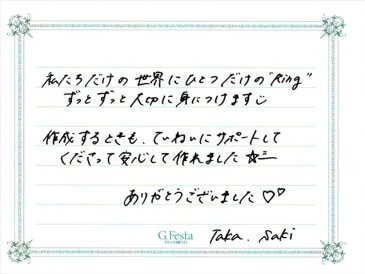 私たちだけの世界にひとつだけの"Ring"
ずっとずっと大切に身につけます
作成するときも、ていねいにサポートして
くださって安心して作れました☆彡
ありがとうございました♡♡
G.Festa
Taka. Saki